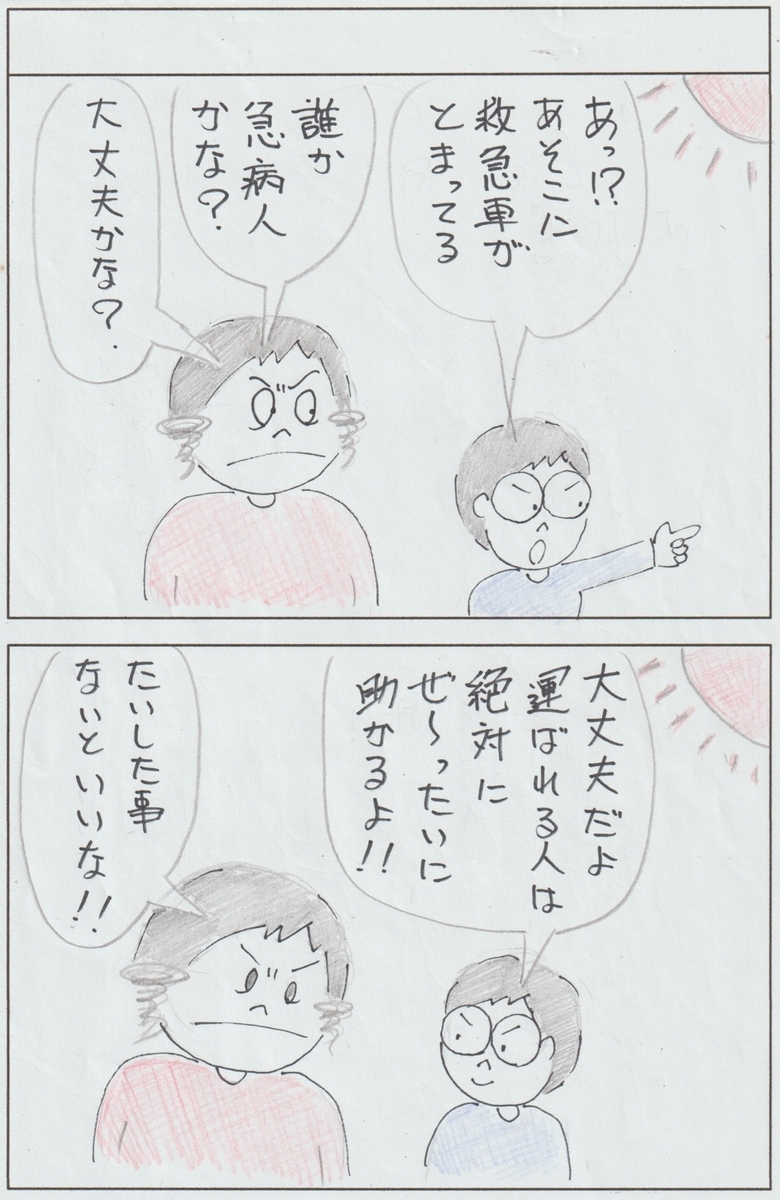 あっ!?
あそこに
救急車が
とまってる
誰か
急病人
かな?
大丈夫かな?
大丈夫だよ
運ばれる人は
絶対に
ぜ〜ったいに
助かるよ!!
たいした事
ないといいな!!